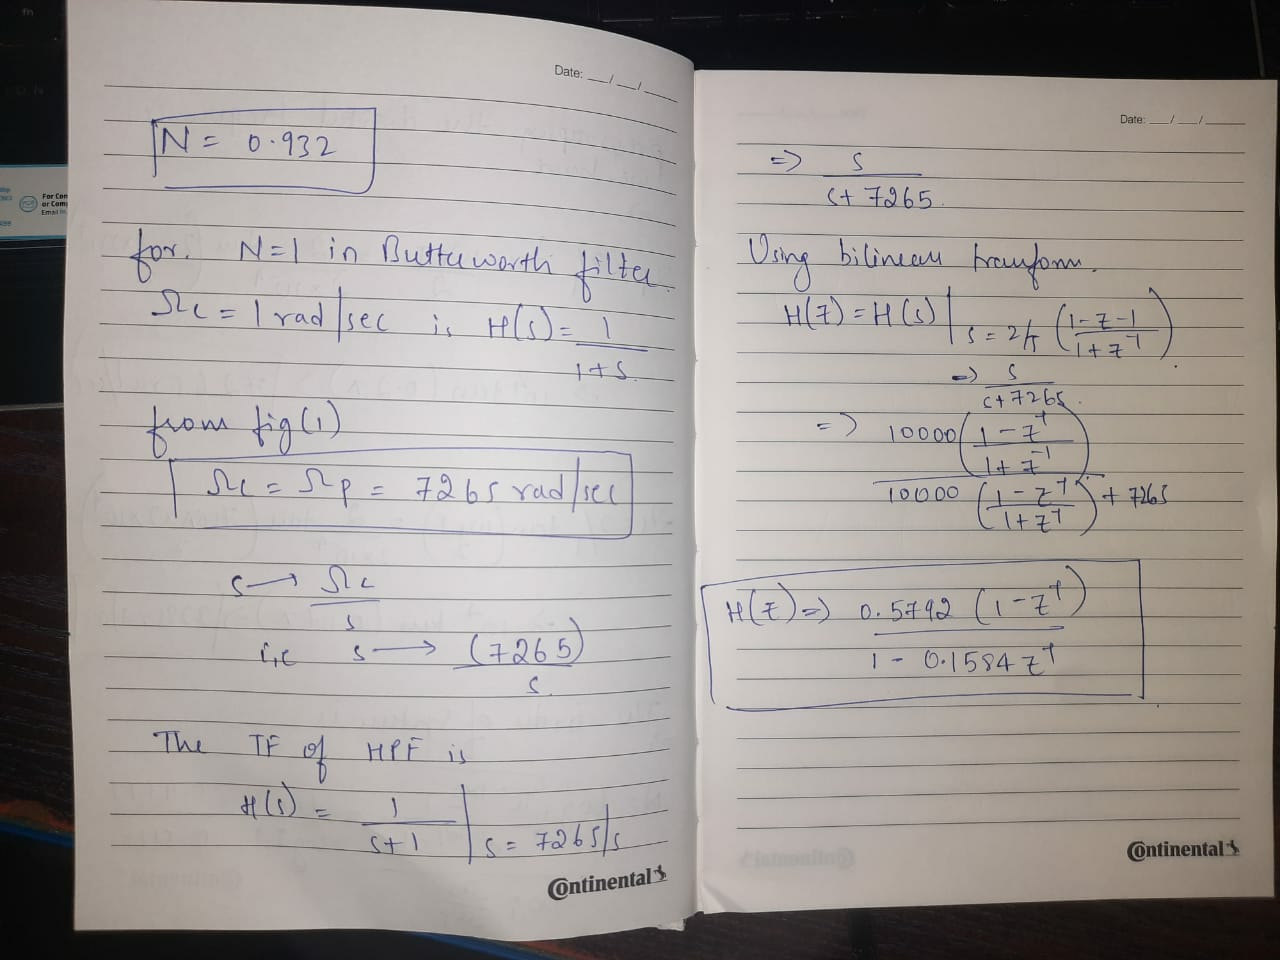 Date: __/__/____
N = 0.932
for. N=1 in Butterworth filter.
Ωc = 1 rad/sec is H(s) = 1
1+s.
from fig(1)
Ωc = Ωp = 7265 rad/sec
s → Ωc
s
i,e s → (7265)
s
The TF of HPF is
H(s) = 1
s+1 | s = 7265/s
Continental
Date: __/__/____
=> s
s+ 7265.
Using bilinear transform.
H(z) = H(s) | s = 2/T (1-z-1
1+z⁻¹)
=> s
s+7265.
=> 10000 (1-z⁻¹
1+z⁻¹)
10000 (1-z⁻¹
1+z⁻¹) + 7265
H(z) => 0.5792 (1-z⁻¹)
1 - 0.1584 z⁻¹
Continental
For Con
or Comp
Email